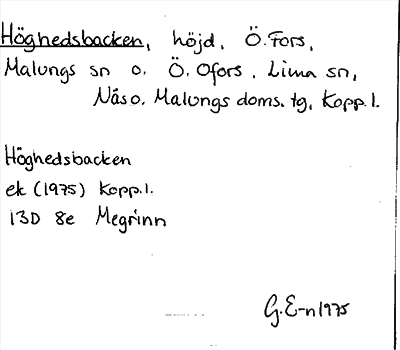 Höghedsbacken, höjd, Ö. Fors,
Malungs sn o. Ö. Ofors, Lima sn,
Nås o. Malungs doms. tg, Kopp. l.
Höghedsbacken
ek (1975) Kopp. l.
13D 8e Megrinn
G. E-n 1975